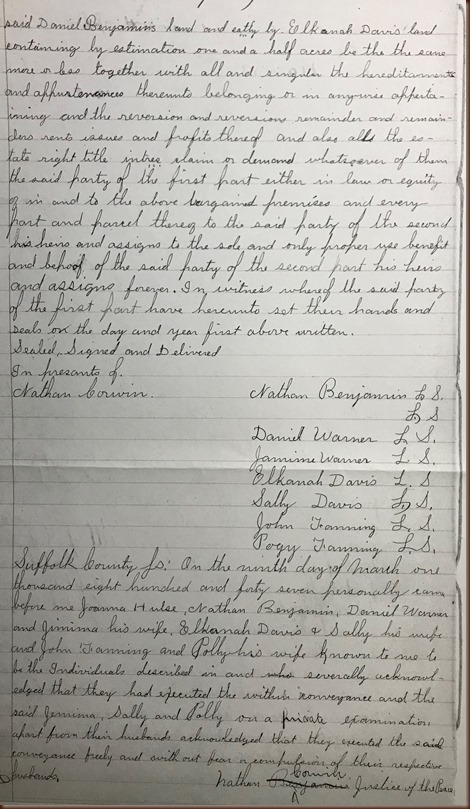 said Daniel Benjamins land and eathy by Elkanah Davis' land
containing by estimation one and a half acres be the the same
more or less together with all and singular the hereditaments
and appurtenances thereunto belonging or in anywise apperta-
ining and the reversion and reversions remainder and remain-
ders rents issues and profits thereof and also alls the es-
tate right title claim or demand whatsoever of them
the said party of the first part either in law or equity
of in and to the above bargained premises and every
part and parcel thereof to the said party of the second
his heirs and assigns to the sole and only proper use benefit
and behoof of the said party of the second part his heirs
and assigns forever. In witness whereof the said party
of the first part have hereunto set their hands and
seals on the day and year first above written.
Sealed, Signed and Delivered
In presants of.
Nathan Corwin. Nathan Benjamin L. S.
L. S
Daniel Warner L. S.
Jamime Warner L S.
Elkanah Davis L. S
Sally Davis L. S.
John Fanning L. S.
Pogy Fanning L. S.
Suffolk County Js: On the ninth day of March one
thousand eight hundred and forty seven personally came
before me Joanna Hulse, Nathan Benjamin, Daniel Warner
and Jimima his wife, Elkanah Davis & Sally his wife
and John Fanning and Polly his wife known to me to
be the Individuals described in and who severally acknowl-
edged that they had executed the within conveyance and the
said Jemima, Sally and Polly on a private examination
apart from their husbands acknowledged that they executed the said
conveyance freely and with out fear or compulsion of their respective
husbands. Nathan Corwin Justice of the Peace